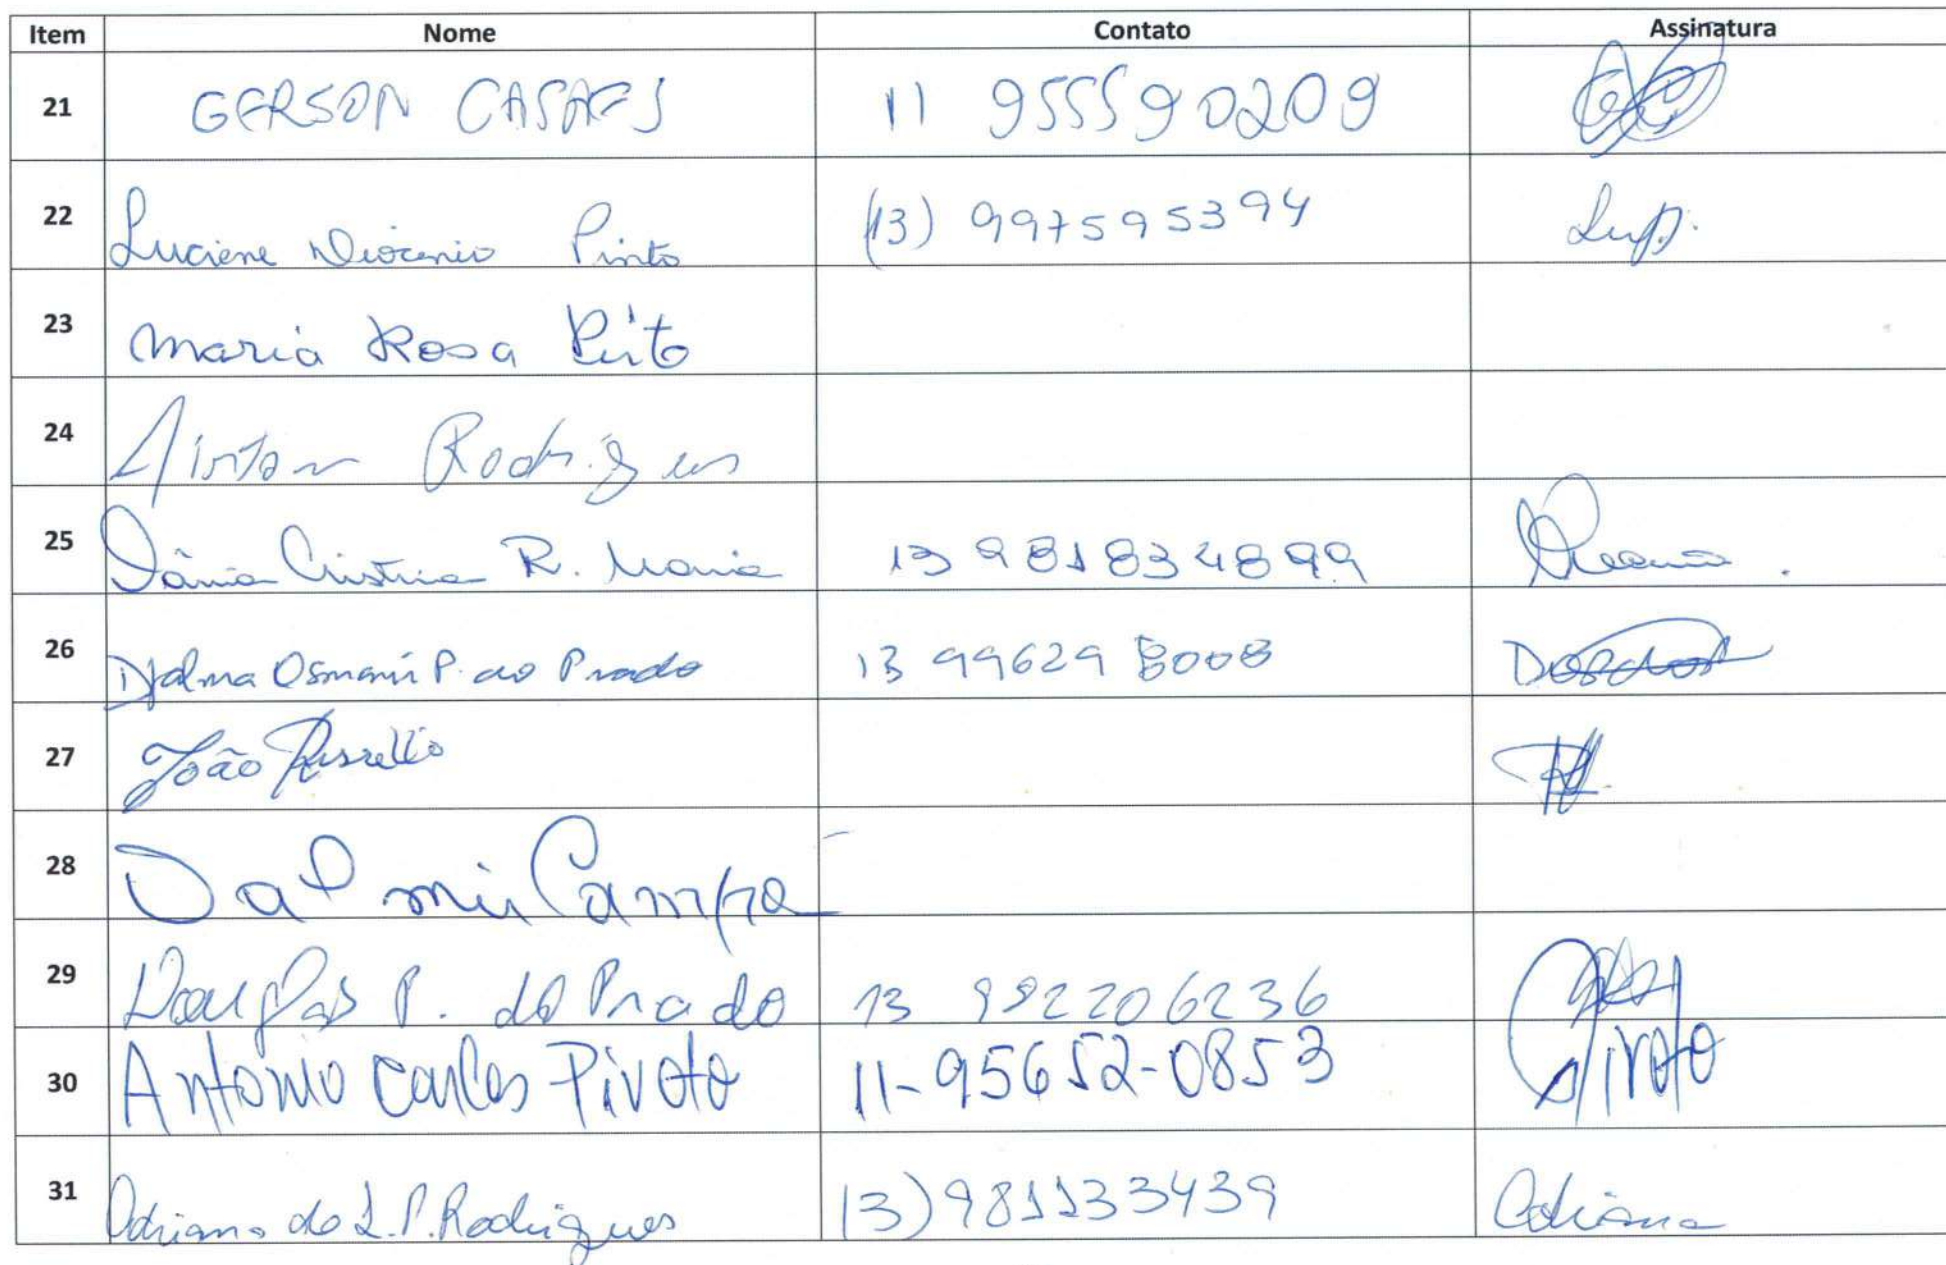 Item Nome Contato Assinatura
21 GERSON CASAES 11 955590209
22 Luciene Diocenio Pinto (13) 997595394 Lup.
23 Maria Rosa Pinto
24 Airton Rodrigues
25 Vânia Cristina R. Maria 13 981834899
26 Djalma Osmani P. do Prado 13 99629 8008
27 João
28 Dalmir Campos
29 Douglas P. do Prado 13 992206236
30 Antonio Carlos Pivoto 11-95652-0853 Pivoto
31 Adriana do L. P. Rodrigues 13) 981133439 Adriana